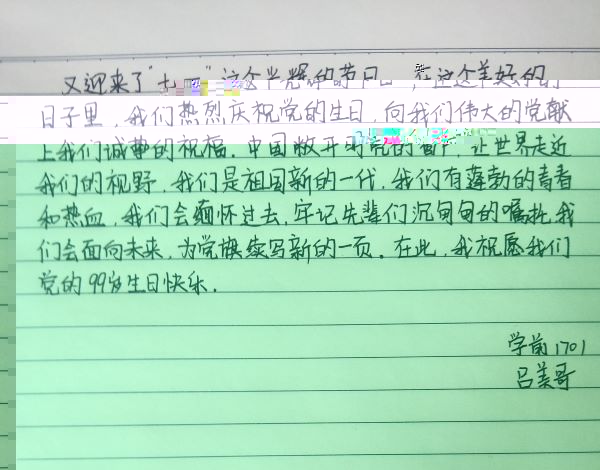 又迎来了"七一"这个光辉的节日，在这个美好的
日子里，我们热烈庆祝党的生日，向我们伟大的党献
上我们诚挚的祝福。中国敞开的窗户 让世界走近
我们的视野，我们是祖国新的一代，我们有蓬勃的青春
和热血，我们会缅怀过去，牢记先辈们沉甸甸的嘱托，我
们会面向未来，为党旗续写新的一页。在此，我祝愿我们
党的99岁生日快乐。
学前1701
吕美哥